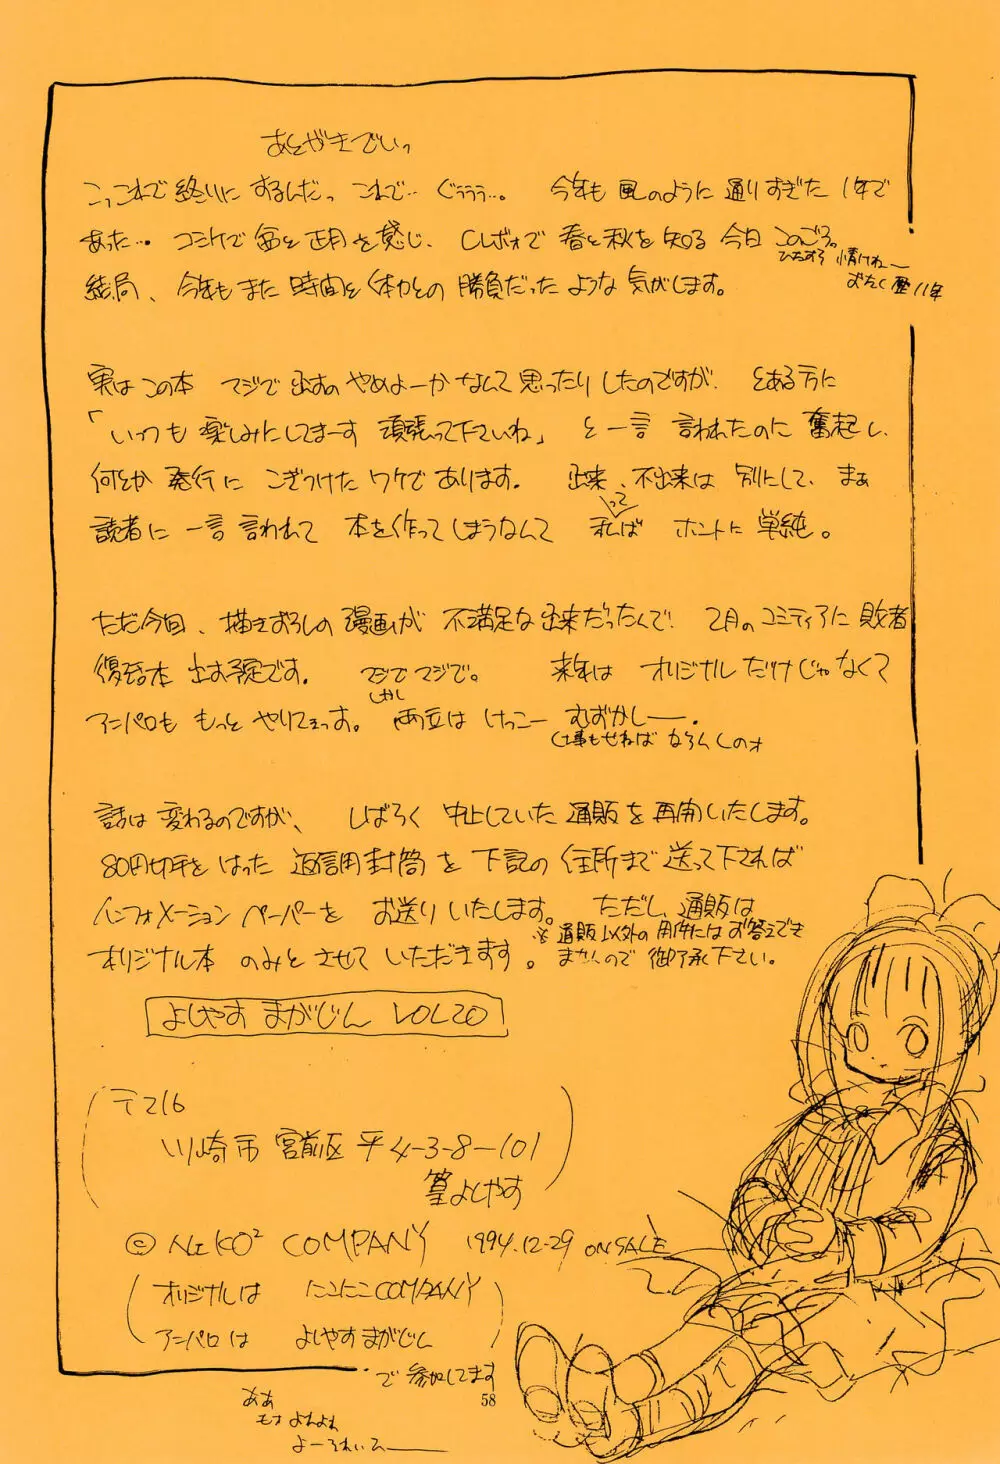 あとがきでぃっ
こっこれで終りにするんだっ これで… ぐぅぅぅ…。 今年も風のように通りすぎた1年で
あった… コミケで盆と正月を感じ、CレヴォでC春と秋を知る今日このごろ。
ひたすら情けねー
おたく歴11年
結局、今年もまた時間と体力との勝負だったような気がします。
実はこの本 マジで出すのやめよーかなんて思ったりしたのですが、とある方に
「いつも楽しみにしてまーす 頑張って下さいね」と一言 言われたのに奮起し、
何とか発行に こぎつけたワケであります。 出来、不出来は別にして、まぁ
読者に一言言われて 本を作ってしまうなんて 私って ホントに単純。
ただ今回、描きおろしの漫画が不満足な出来だったんで、2月のコミティアに敗者
復活本 出す予定です。 マジでマジで。 来年は オリジナルだけじゃなくて
アニパロも もっと やりてえっす。 しかし 両立は けっこー むずかしー。
仕事もせねば ならんしのォ
話は変わるのですが、しばらく中止していた通販を再開いたします。
80円切手をはった返信用封筒を下記の住所まで送って下されば
インフォメーションペーパーを お送りいたします。 ただし、通販は
オリジナル本 のみと させて いただきます。
※通販以外の用件にはお答えでき
ませんので 御了承下さい。
よしやす まがじん VOL20
〒216
川崎市 宮前区 平4-3-8-101
篁よしやす
© NEKO² COMPANY 1994.12.29 ON SALE
オリジナルは にこにこCOMPANY
アニパロは よしやすまがじん
で 参加してます
58
ああ
もォ よれよれ
よーろれいひー